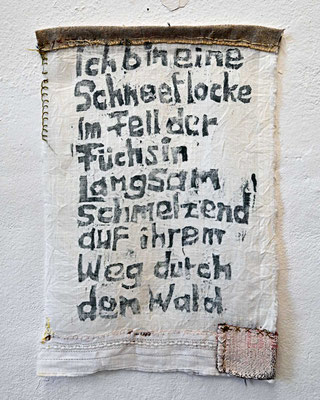 Ich bin eine
Schneeflocke
Im Fell der
Füchsin
Langsam
schmelzend
auf ihrem
Weg durch
den Wald